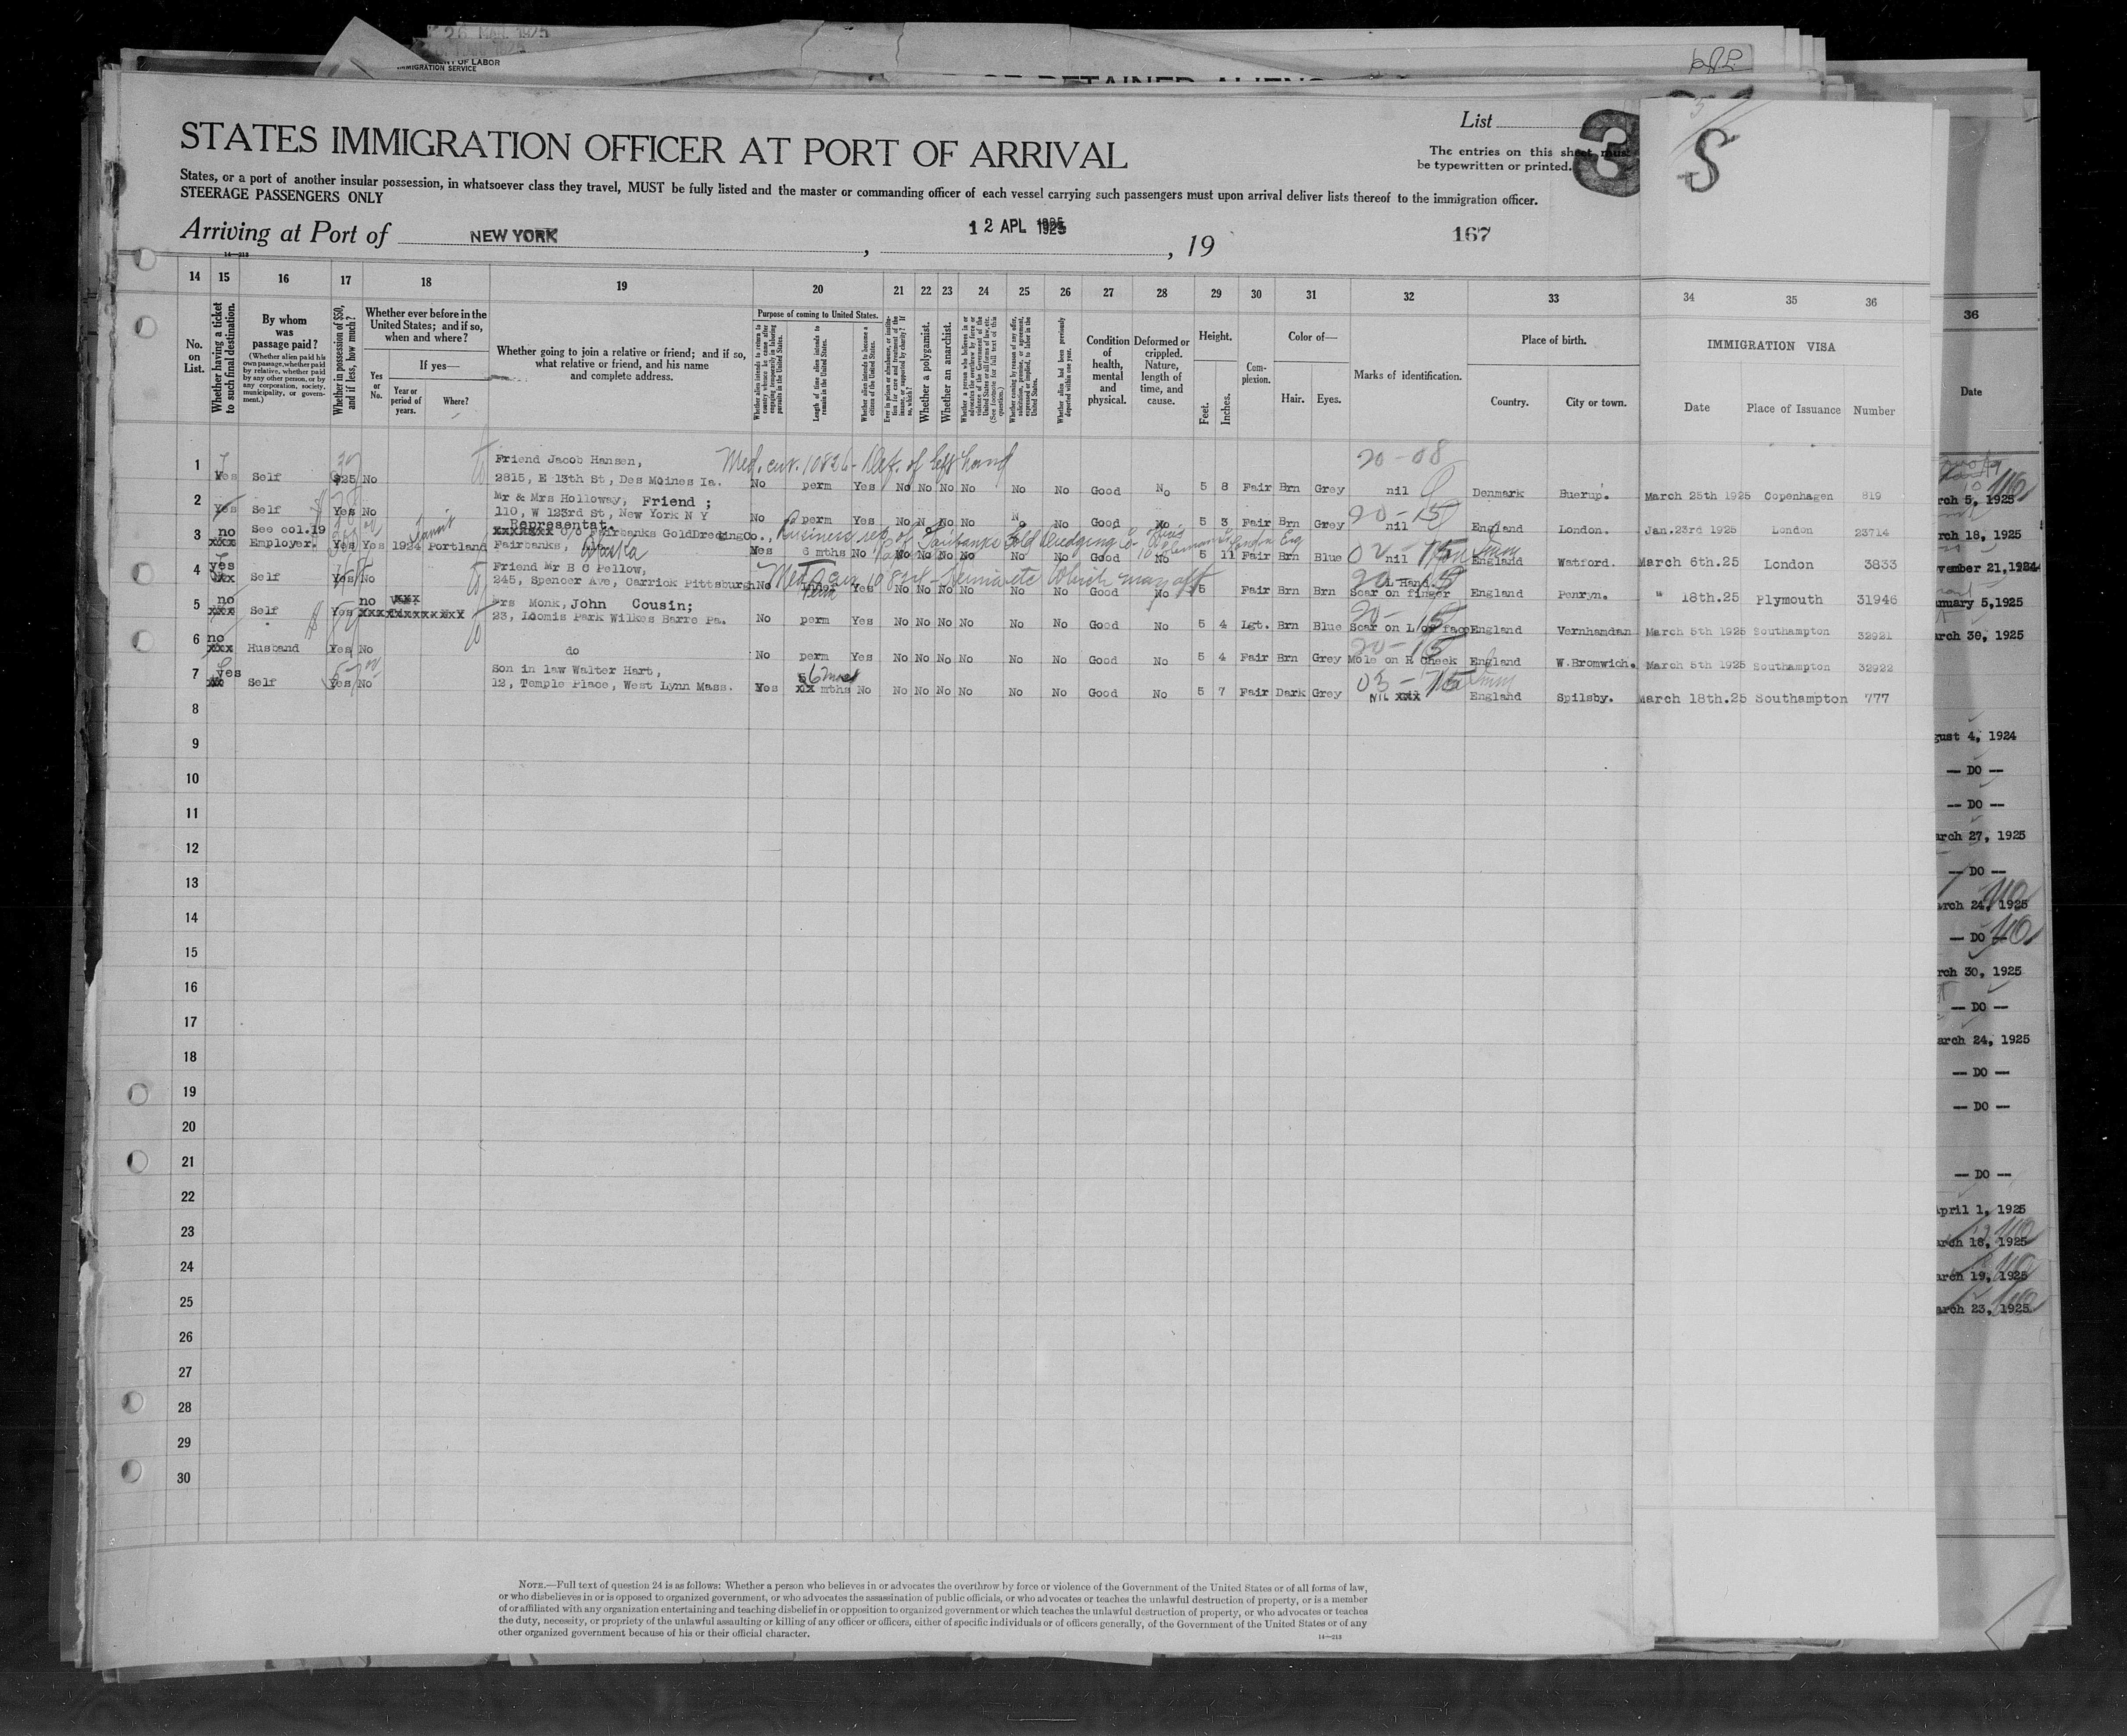 26 MAR 1925
IMMIGRATION SERVICE
List
3
S
STATES IMMIGRATION OFFICER AT PORT OF ARRIVAL
The entries on this sheet must
be typewritten or printed.
States, or a port of another insular possession, in whatsoever class they travel, MUST be fully listed and the master or commanding officer of each vessel carrying such passengers must upon arrival deliver lists thereof to the immigration officer.
STEERAGE PASSENGERS ONLY
Arriving at Port of NEW YORK, 12 APL 1925, 19
167
14—213
14 15 16 17 18 19 20 21 22 23 24 25 26 27 28 29 30 31 32 33 34 35 36
No. on List.
Whether having a ticket to such final destination.
By whom was passage paid?
(Whether alien paid his own passage, whether paid by relative, whether paid by any other person, or by any corporation, society, municipality, or government.)
Whether in possession of $50, and if less, how much?
Whether ever before in the United States; and if so, when and where?
If yes—
Yes or No.
Year or period of years.
Where?
Whether going to join a relative or friend; and if so, what relative or friend, and his name and complete address.
Purpose of coming to United States.
Whether alien intends to return to country whence he came after engaging temporarily in laboring pursuits in the United States.
Length of time alien intends to remain in the United States.
Whether alien intends to become a citizen of the United States.
Whether a polygamist.
Whether an anarchist.
Condition of health, mental and physical.
Deformed or crippled. Nature, length of time, and cause.
Height.
Feet. Inches.
Complexion.
Color of—
Hair. Eyes.
Marks of identification.
Place of birth.
Country. City or town.
IMMIGRATION VISA
Date Place of Issuance Number
36
Date
1 Yes Self $25 No Friend Jacob Hansen,
2815, E 13th St, Des Moines Ia. No perm Yes No No No No No No Good No 5 8 Fair Brn Grey nil Denmark Buerup. March 25th 1925 Copenhagen 819
Med. cer. 10826 - Def. of left hand
20-08
2 Yes Self Yes No Mr & Mrs Holloway, Friend;
110, W 123rd St, New York N Y No perm Yes No No No No No No Good No 5 3 Fair Brn Grey nil England London. Jan.23rd 1925 London 23714
20-15
3 no xxx See col.19 Employer. Yes Yes 1924 Portland Representat.
xxxxxxx c/o Fairbanks GoldDredingCo.,
Fairbanks, Alaska Yes 6 mths No No No No No No No Good No 5 11 Fair Brn Blue nil England Watford. March 6th.25 London 3833
Transit
Business rep of Fairbanks Gold Dredging Co
02-15
4 yes xxx Self Yes No Friend Mr B C Pellow,
245, Spencer Ave, Carrick Pittsburgh No Perm Yes No No No No No No Good No 5 Fair Brn Brn L Hand. Scar on finger England Penryn. " 18th.25 Plymouth 31946
20-15
5 no xxx Self Yes no xxx Mrs Monk, John Cousin;
23, Loomis Park Wilkes Barre Pa. No perm Yes No No No No No No Good No 5 4 Lgt. Brn Blue Scar on L of face England Vernhamdan March 5th 1925 Southampton 32921
20-15
6 no xxx Husband Yes No do No perm Yes No No No No No No Good No 5 4 Fair Brn Grey Mole on R Cheek England W.Bromwich. March 5th 1925 Southampton 32922
20-15
7 yes xx Self Yes No Son in law Walter Hart,
12, Temple Place, West Lynn Mass. Yes xx mths No No No No No No No Good No 5 7 Fair Dark Grey Nil xxx England Spilsby. March 18th.25 Southampton 777
03-15
8
9
10
11
12
13
14
15
16
17
18
19
20
21
22
23
24
25
26
27
28
29
30
rch 5, 1925
rch 18, 1925
vember 21, 1924
nuary 5, 1925
arch 30, 1925
gust 4, 1924
— DO —
— DO —
arch 27, 1925
— DO —
arch 24, 1925
— DO —
rch 30, 1925
— DO —
arch 24, 1925
— DO —
— DO —
— DO —
April 1, 1925
arch 18, 1925
arch 19, 1925
arch 23, 1925
NOTE.—Full text of question 24 is as follows: Whether a person who believes in or advocates the overthrow by force or violence of the Government of the United States or of all forms of law,
or who disbelieves in or is opposed to organized government, or who advocates the assassination of public officials, or who advocates or teaches the unlawful destruction of property, or is a member
of or affiliated with any organization entertaining and teaching disbelief in or opposition to organized government or which teaches the unlawful destruction of property, or who advocates or teaches
the duty, necessity, or propriety of the unlawful assaulting or killing of any officer or officers, either of specific individuals or of officers generally, of the Government of the United States or of any
other organized government because of his or their official character.
14—213